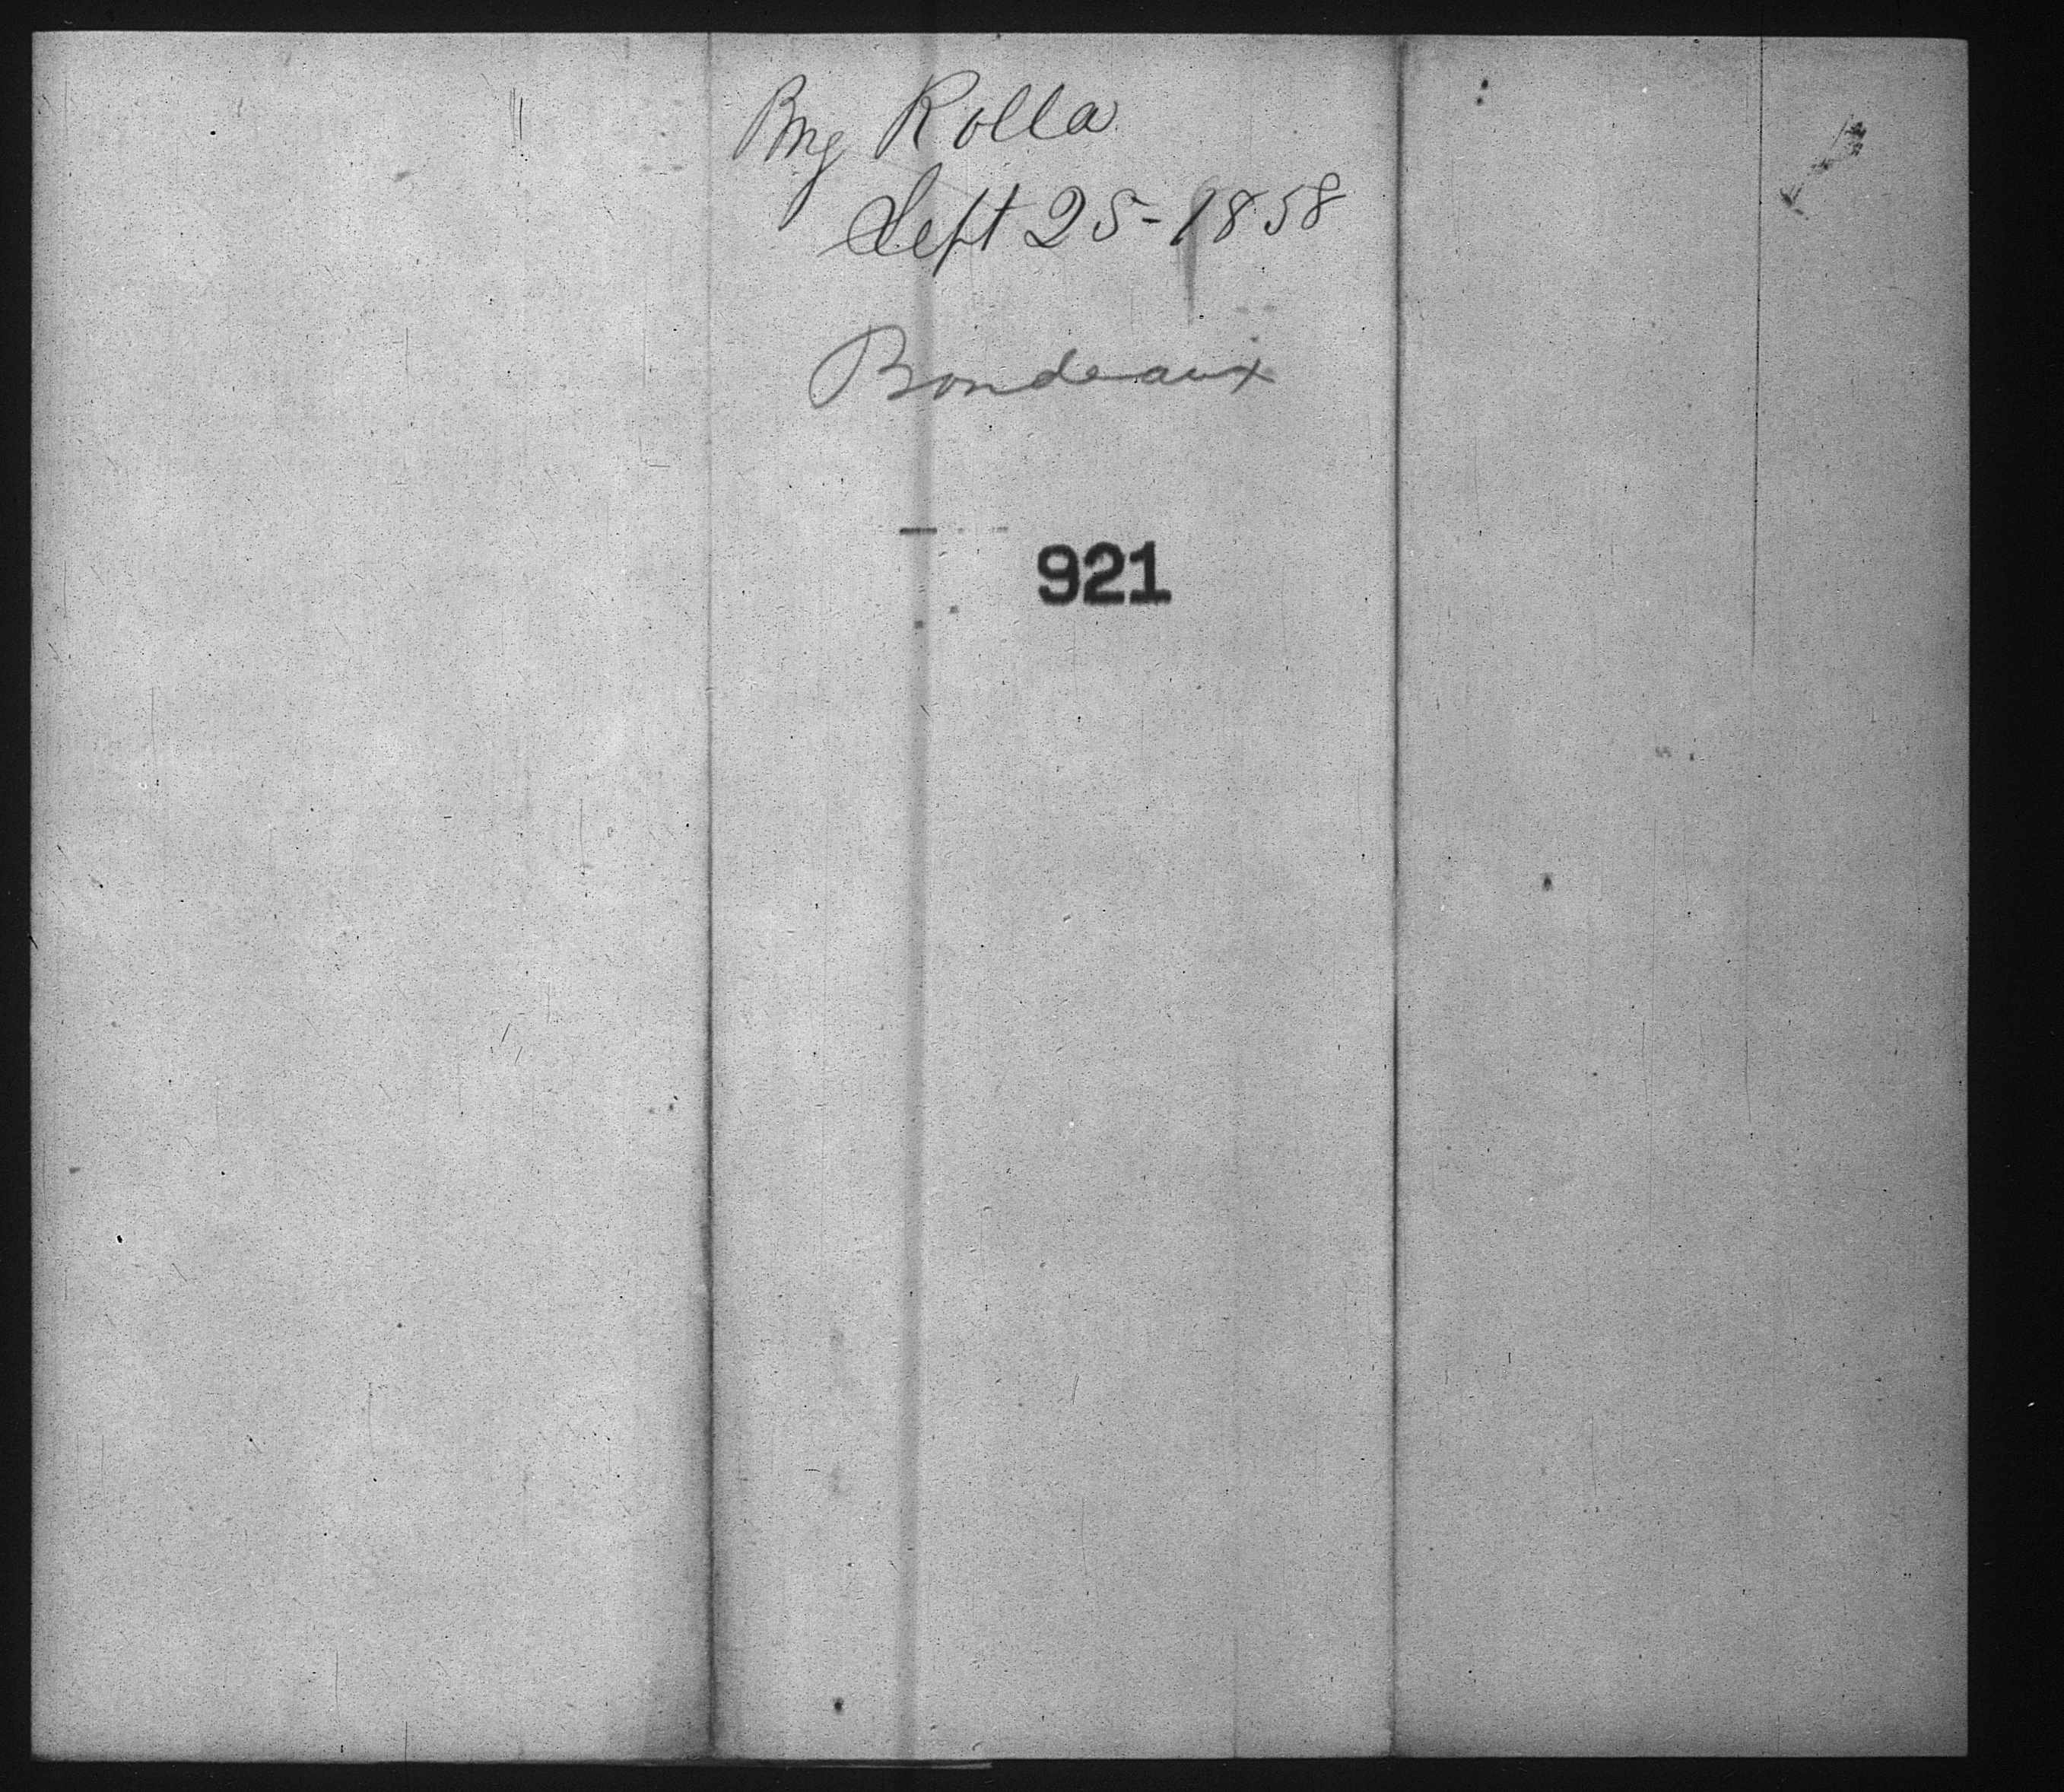 Brig Rolla
Sept 25-1858
Bordeaux
921